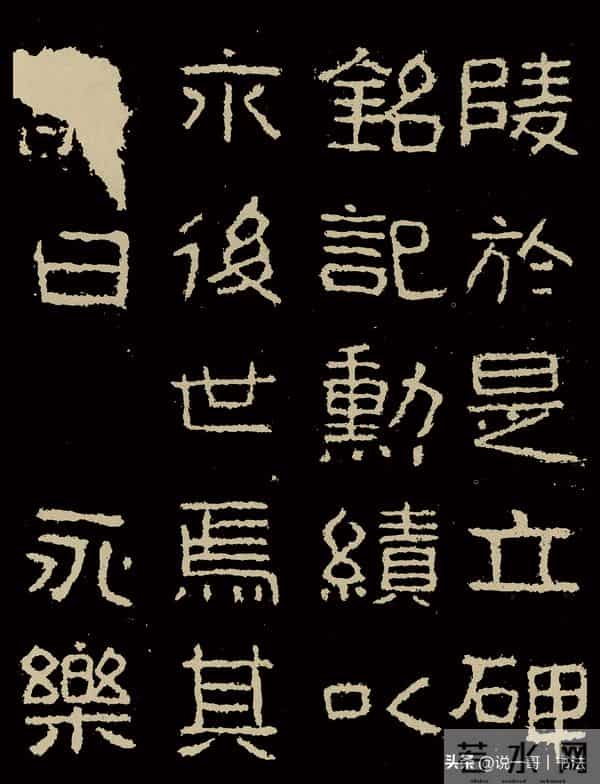 陵於是立碑
銘記勳績以
示後世焉其
曰永樂
若水网
头条 @说一哥丨书法